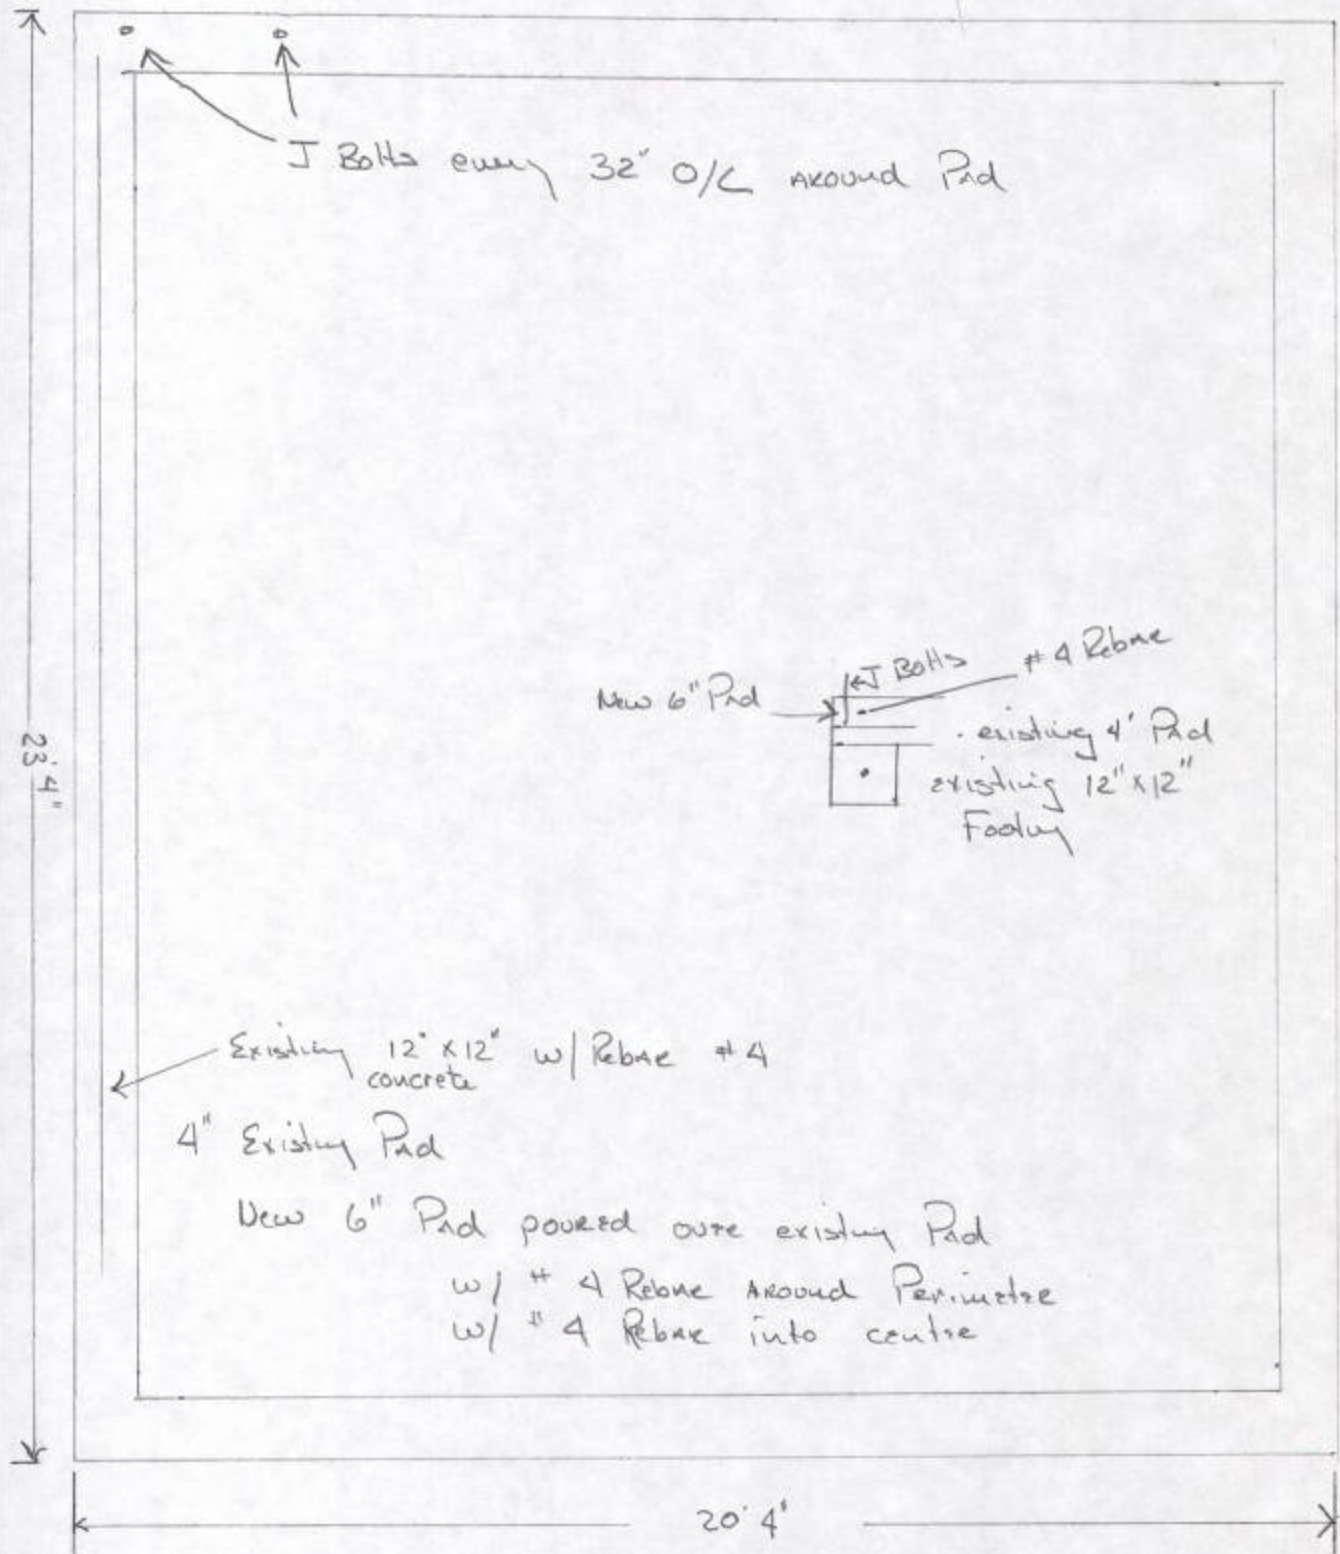 J Bolts every 32" O/C AROUND Pad
J Bolts
# 4 Rebar
New 6" Pad
existing 4' Pad
existing 12" x 12"
Footing
23' 4"
Existing 12" x 12" w/ Rebar # 4
concrete
4" Existing Pad
New 6" Pad poured over existing Pad
w/ # 4 Rebar AROUND Perimetre
w/ # 4 Rebar into centre
20' 4'